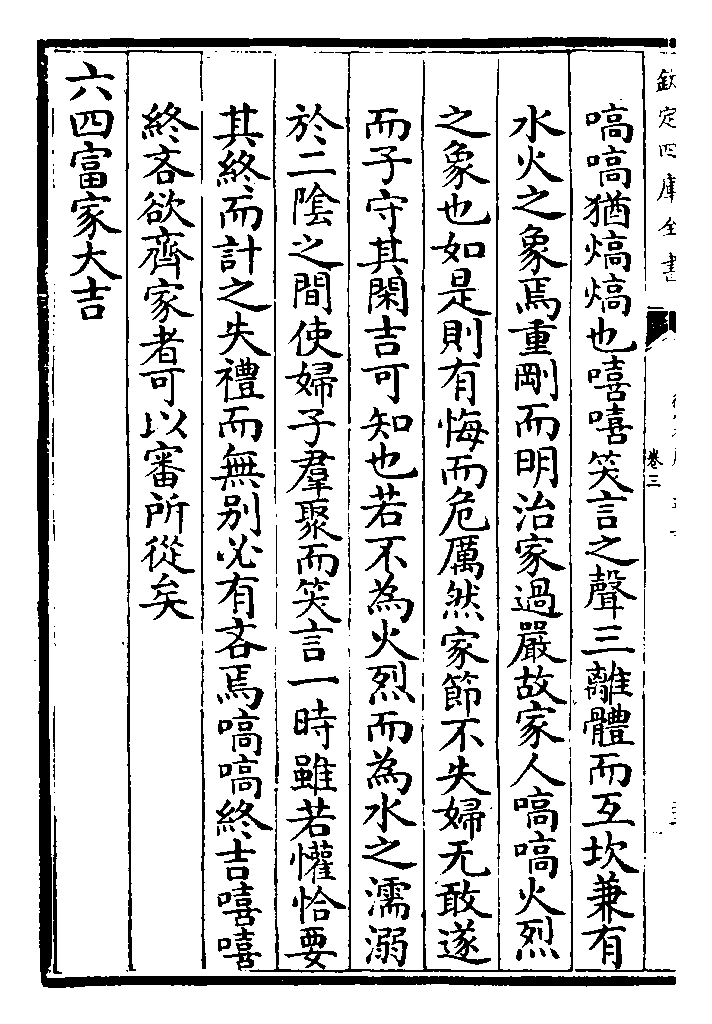 欽定四庫全書
卷三
嗃嗃猶熇熇也嘻嘻笑言之聲三離體而互坎兼有
水火之象焉重剛而明治家過嚴故家人嗃嗃火烈
之象也如是則有悔而危厲然家節不失婦无敢遂
而子守其閑吉可知也若不為火烈而為水之濡溺
於二陰之間使婦子羣聚而笑言一時雖若懽恰要
其終而計之失禮而無别必有吝焉嗃嗃終吉嘻嘻
終吝欲齊家者可以審所從矣
六四富家大吉